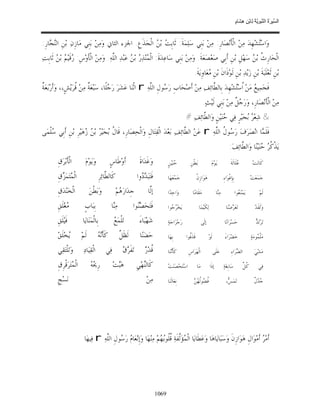 السيرة النبوية لابن هشام
وَاسْتُشْهِدَ مِنْ الْأَنْصَارِ مِنْ بَنِي سَلِمَةَ: ثَابِتُ بْنُ الْجَذَعِ. الجزء الثاني وَمِنْ بَنِي مَازِنِ بْنِ النّجّارِ
الْحَارِثُ بْنُ سَهْلِ بْنِ أَبِي صَعْصَعَةَ. وَمِنْ بَنِي سَاعِدَةَ: الْمُنْذِرُ بْنُ عَبْدِ اللّهِ. وَمِنْ الْأَوْسِ: رُقَيْمُ بْنُ ثَابِتِ
بْنِ ثَعْلَبَةَ بْنِ زَيْدِ بْنِ لَوْذَانَ بْنِ مُعَاوِيَةَ
فَجَمِيعُ مَنْ اُسْتُشْهِدَ بِالطّائِفِ مِنْ أَصْحَابِ رَسُولِ اللّهِ اثْنَا عَشَرَ رَجُلًا، سَبْعَةٌ مِنْ قُرَيْشٍ،، وَأَرْبَعَةٌ
مِنْ الْأَنْصَارِ، وَرَجُلٌ مِنْ بَنِي لَيْثٍ
& شِعْرُ بُجَيْرٍ فِي حُنَيْنٍ وَالطّائِفِ #
فَلَمّا انْصَرَفَ رَسُولُ اللّهِ عَنْ الطّائِفِ بَعْدَ الْقِتَالِ وَالْحِصَارِ، قَالَ بُجَيْرُ بْنُ زُهَيْرِ بْنِ أَبِي سُلْمَى
يَذْكُرُ حُنَيْنًا وَالطّائِفَ:
كَانَتْ عُلَالَةَ يَوْمَ بَطْنِ حُنَيْنٍ وَغَدَاةَ أَوْطَاسٍ وَيَوْمَ الْأَبْرَقِ
جَمَعَتْ بِإِغْوَاءٍ هَوَازِنُ جَمْعَهَا فَتَبَدّدُوا كَالطّائِرِ الْمُتَمَزّقِ
لَمْ يَمْنَعُوا مِنّا مَقَامًا وَاحِدًا إلّا جِدَارَهُمْ وَبَطْنَ الْخَنْدَقِ
وَلَقَدْ تَعَرّضْنَا لِكَيْمَا يَخْرُجُوا فَتَحَصّنُوا مِنّا بِبَابٍ مُغْلَقِ
تَرْتَدّ حَسْرَانًا إلَى رَجْرَاجَةٍ شَهْبَاءَ تَلْمَعُ بِالْمَنَايَا فَيْلَقِ
مَلْمُومَةٍ خَضْرَاءَ لَوْ قَذَفُوا بِهَا حَضَنًا لَظَلّ كَأَنّهُ لَمْ يُخْلَقْ
مَشْيَ الضّرَاءِ عَلَى الْهَرَاسِ كَأَنّنَا قُدُرٌ تَفَرّقُ فِي الْقِيَادِ وَتَلْتَقِي
فِي كُلّ سَابِغَةٍ إذَا مَا اسْتَحْصَنَتْ كَالنّهْيِ هَبّتْ رِيحُهُ الْمُتَرَقْرِقِ
جُدُلٌ تَمَسّ فُضُولُهُنّ نِعَالَنَا مِنْ نَسْجِ
أَمْرُ أَمْوَالِ هَوَازِنَ وَسَبَايَاهَا وَعَطَايَا الْمُؤَلّفَةِ قُلُوبُهُمْ مِنْهَا وَإِنْعَامُ رَسُولِ اللّهِ فِيهَا
1069